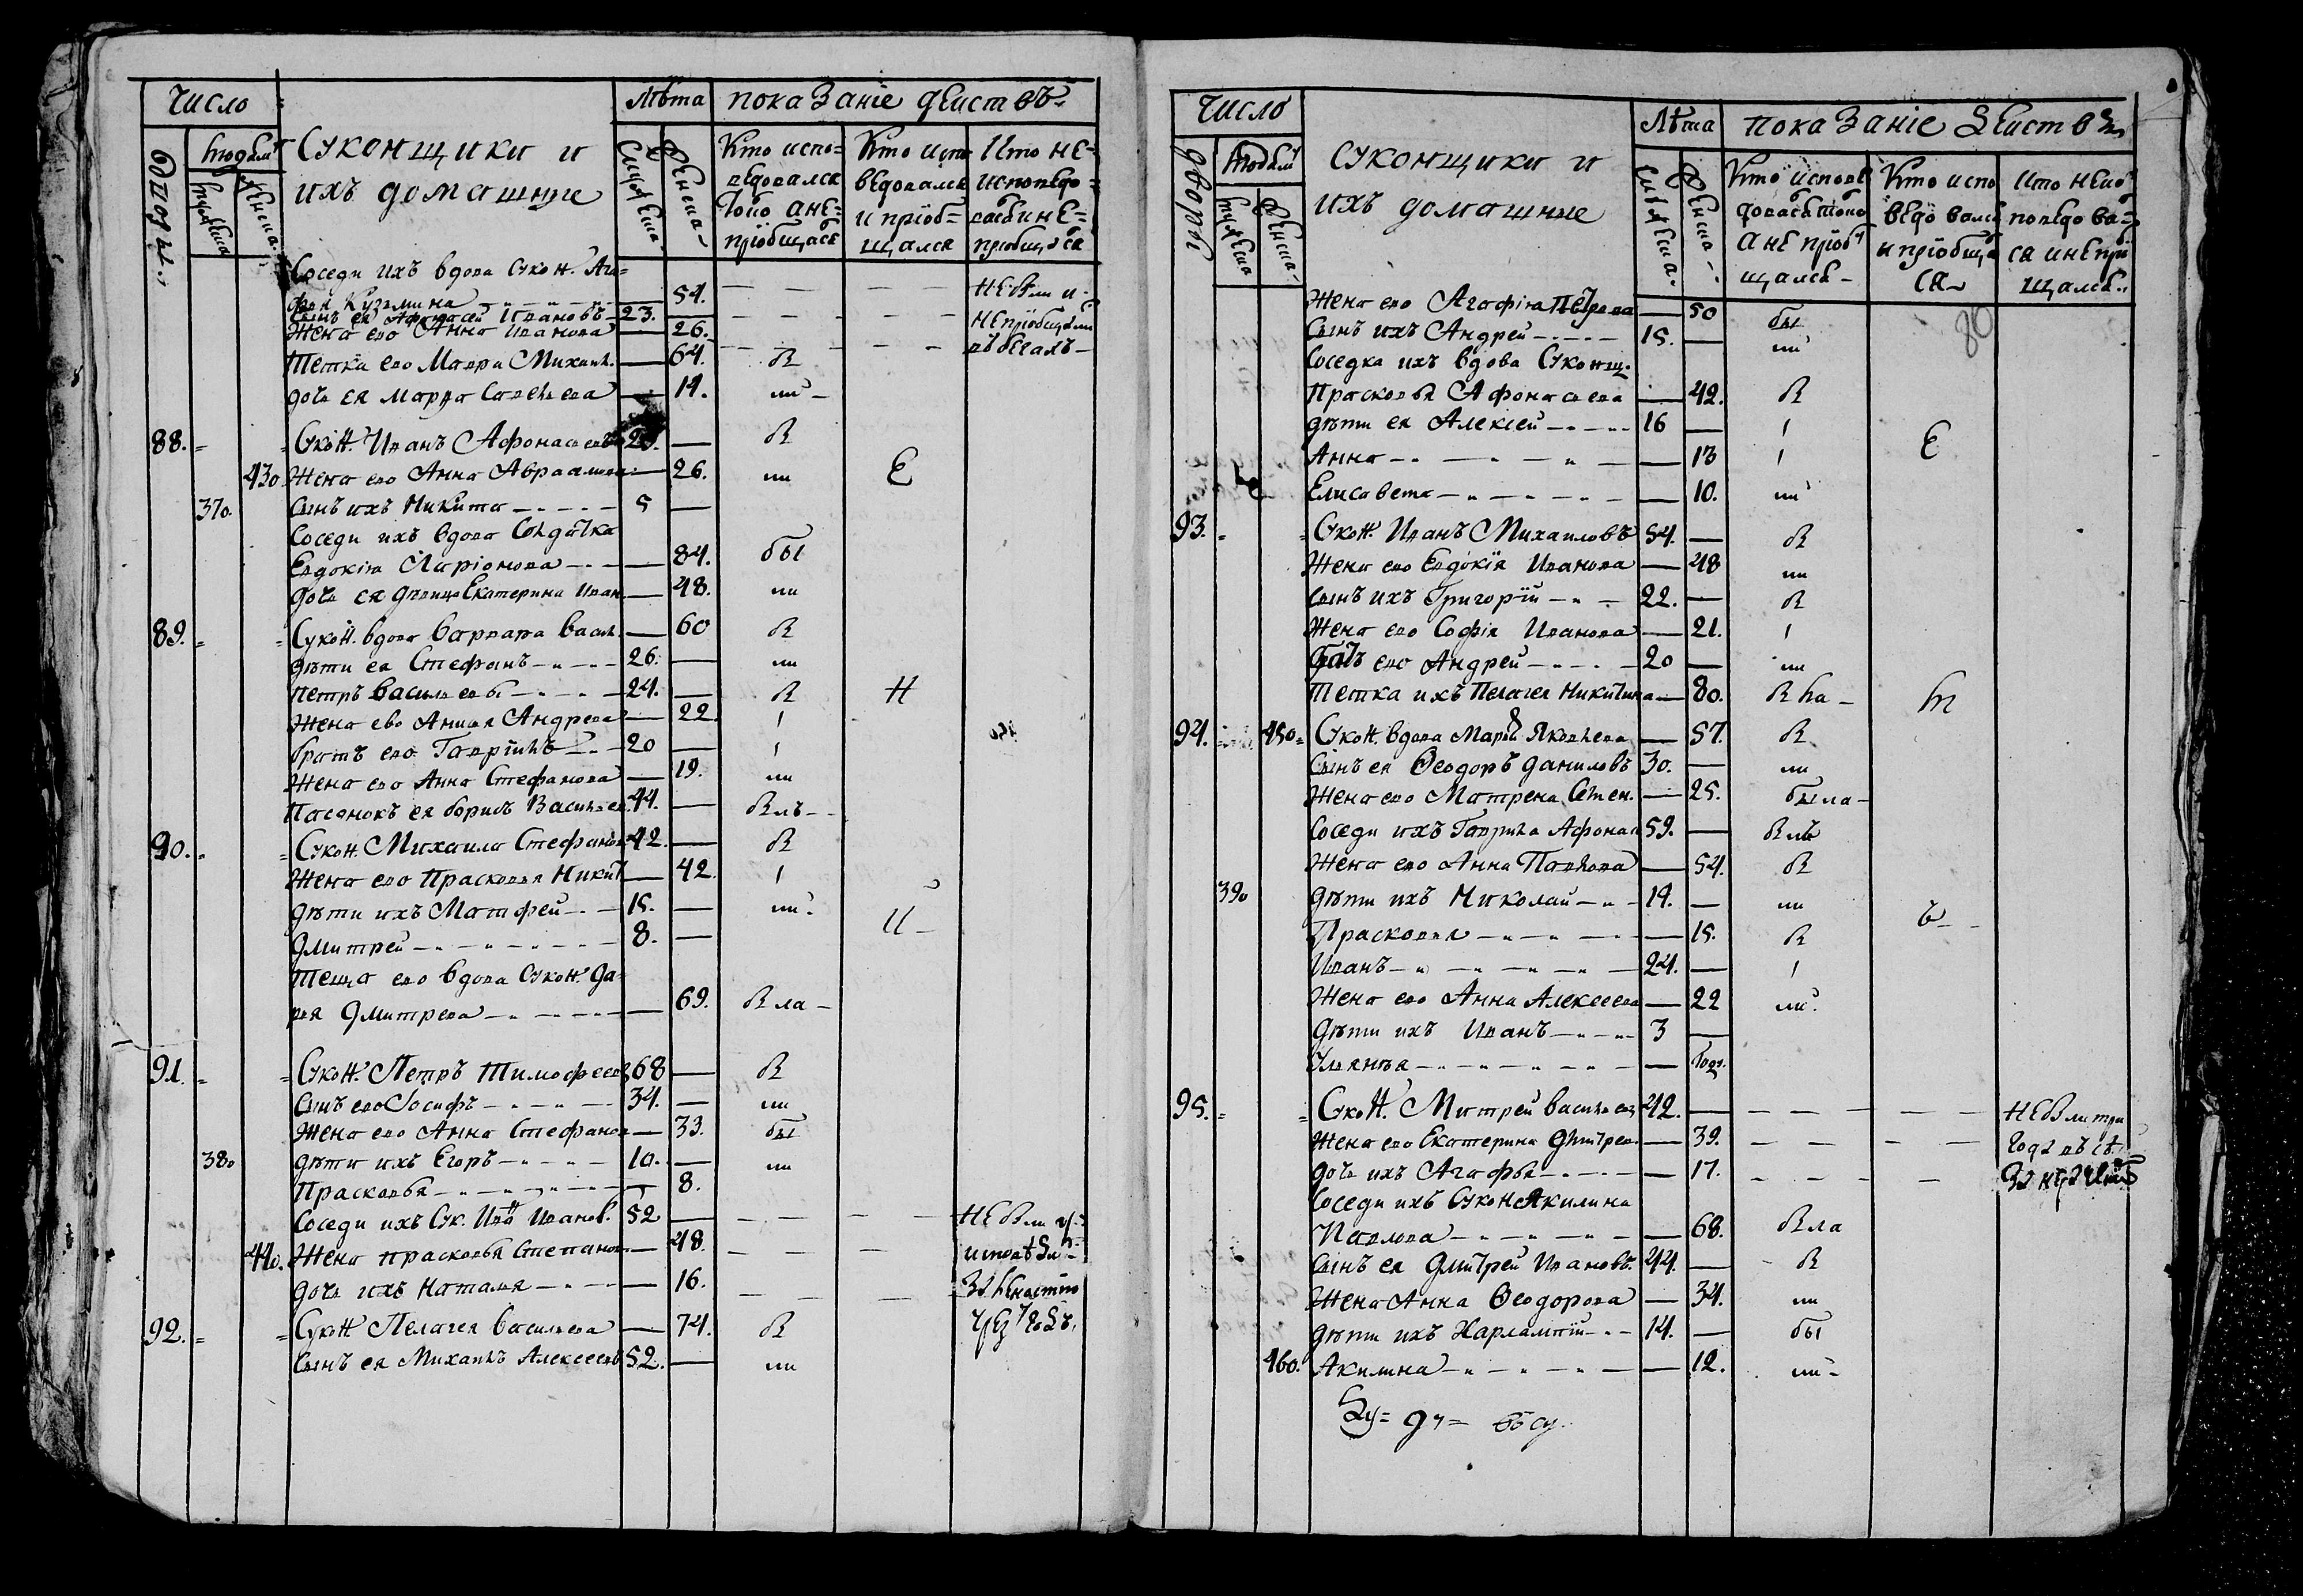 Число
Лѣта
показаніе действъ
дворы
людей
мужеска
женска
Суконщики и
ихъ домашніе
мужеска
женска
Кто испо=
ведовался
токо а не=
пріобщася
Кто испо
ведовался
и пріоб=
щался
Кто не=
исповедо=
вася и не=
пріобщася
Соседи ихъ вдова сукон. Ага=
фья Кузмина 54.
Сынъ ея Афонасей Ивановъ 23.
Жена его Анна Иванова 26.
не
непріобщались
Тетка его Мавра Михаил. 64.
дочь ея Марѳа Савельева 14.
88. Сукон. Иванъ Афонасьевъ
430 Жена его Анна Авраамова 26. Е
370 Сынъ ихъ Никита 5
Соседи ихъ вдова Солдатка
Евдокія Ларіонова 84. бы
дочь ея девица Екатерина Иван. 48. ли
89. Сукон. вдова Варвара Васил. 60
дѣти ея Стефанъ 26. ли
Петръ Васильевы 24. Н
Жена ево Анисья Андреева 22
братъ его Гаврилъ 20
Жена его Анна Стефанова 19. ли
Пасынокъ ея Борисъ Васильев 44.
90. Сукон. Михаила Стефанов 42.
Жена его Прасковья Никит 42
дѣти ихъ Матфей 15. ли
Дмитрей 8. И
Теща его вдова сукон. Да
рья Дмитрева 69.
91. Сукон. Петръ Тимофеев 68
Сынъ его Іосифъ 34. ли
Жена его Анна Стефанов 33. бы
380 дѣти ихъ Егоръ 10. ли
Прасковья 8.
Соседи ихъ Сук. Иванов. 52
440. Жена Прасковья Степанов 48.
дочь ихъ Наталья 16.
92. Сукон Пелагея Васильева 74.
Сынъ ея Михаилъ Алексеевъ 52. ли
Число
Лѣта
показаніе действъ
дворы
людей
мужеска
женска
суконщики и
ихъ домашніе
мужеска
женска
Кто испове
довася токо
а не пріоб
щался
Кто испо
ведовалсь
и пріобща
ся
Кто неис
поведова=
ся и непрі
щался
80
Жена его Агафія Петрова 50 бы
Сынъ ихъ Андрей 15. ли
Соседка ихъ вдова Суконщ.
Прасковья Афонасьева 42.
дѣти ея Алексей 16
Анна 13 Е
Елисавета 10. ли
93. Сукон. Иванъ Михаиловъ 54.
Жена его Евдокія Иванова 48 ли
Сынъ ихъ Григорій 22.
Жена его Софія Иванова 21.
братъ его Андрей 20 ли
Тетка ихъ Пелагея Никитина 80.
94. 450 Сукон. вдова Марья Яковлева 57.
Сынъ ея Ѳеодоръ Даниловъ 30. ли
Жена его Матрена Семен. 25. была
Соседи ихъ Гаврила Афонас 59.
Жена его Анна Павлова 54.
390 дѣти ихъ Николай 19. ли
Прасковья 15. ъ
Иванъ 24.
Жена его Анна Алексеева 22 ли
дѣти ихъ Иванъ 3
Ульянья годъ
95. Сукон. Митрей Васильев 42.
Жена его Екатерина Дмитрев 39.
дочь ихъ Агафья 17.
Соседи ихъ Сукон Акилина
Павлова 68.
Сынъ ея Дмитрей Ивановъ 44.
Жена Анна Ѳеодорова 34. ли
дѣти ихъ Харлампій 14. бы
460. Акилина 12. ли